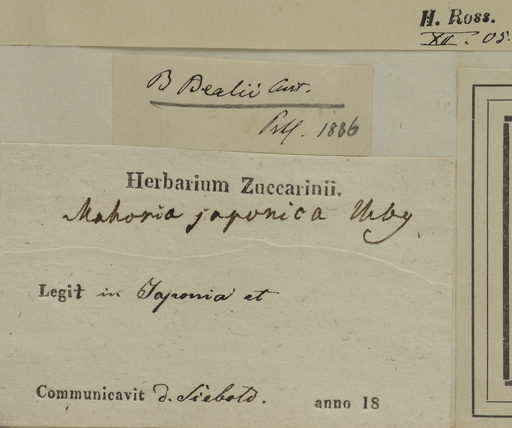 H. Ross.
XII. 05.
B Bealii
1886
Herbarium Zuccarinii.
Mahonia japonica
Legit in Japonia et
Communicavit d. Siebold. anno 18